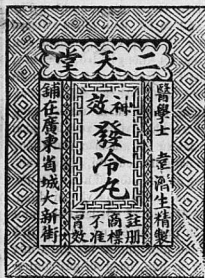 二天堂
醫學士 韋濟生精製
神效
發冷丸
註册商標不准冒效
鋪在廣東省城大新街